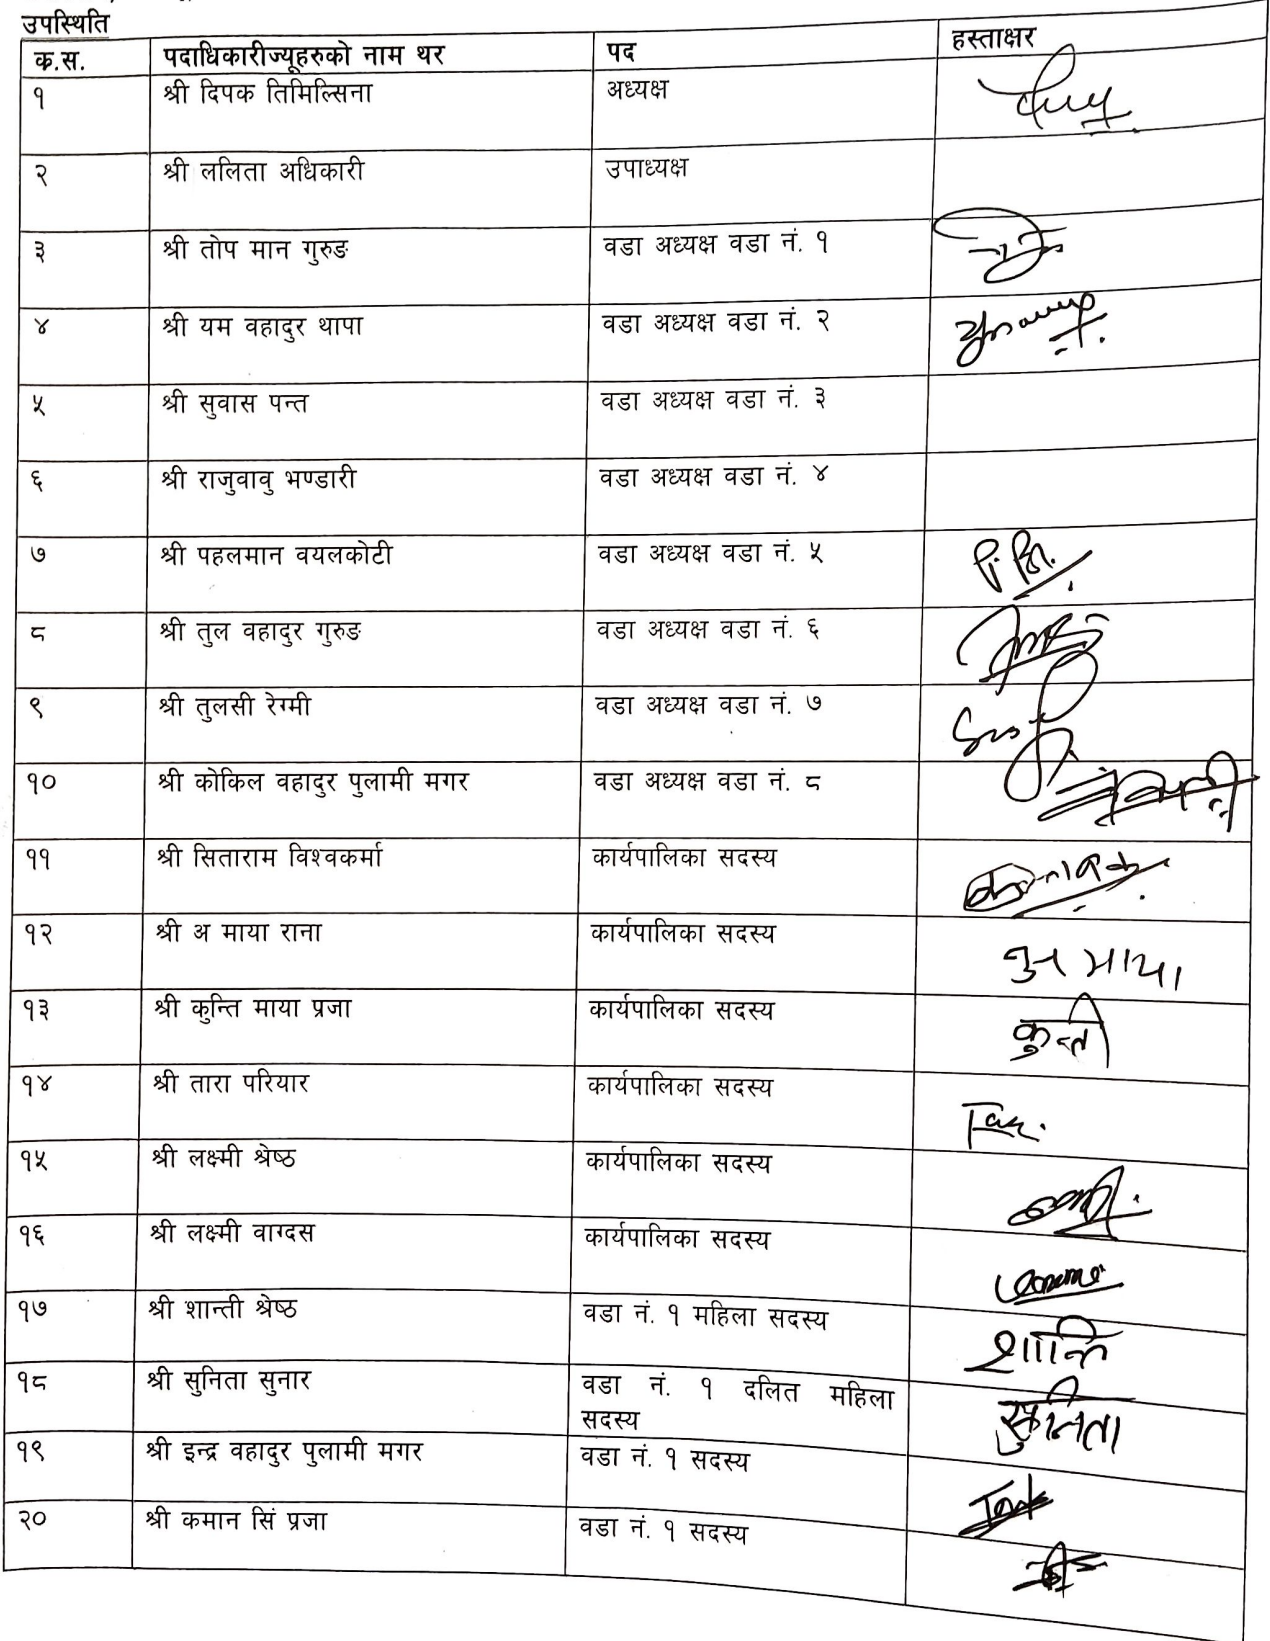 उपस्थिति
क.स. पदाधिकारीज्यूहरुको नाम थर पद हस्ताक्षर
१ श्री दिपक तिमिल्सिना अध्यक्ष
२ श्री ललिता अधिकारी उपाध्यक्ष
३ श्री तोप मान गुरुङ वडा अध्यक्ष वडा नं. १
४ श्री यम वहादुर थापा वडा अध्यक्ष वडा नं. २
५ श्री सुवास पन्त वडा अध्यक्ष वडा नं. ३
६ श्री राजुवावु भण्डारी वडा अध्यक्ष वडा नं. ४
७ श्री पहलमान वयलकोटी वडा अध्यक्ष वडा नं. ५
८ श्री तुल वहादुर गुरुङ वडा अध्यक्ष वडा नं. ६
९ श्री तुलसी रेग्मी वडा अध्यक्ष वडा नं. ७
१० श्री कोकिल वहादुर पुलामी मगर वडा अध्यक्ष वडा नं. ८
११ श्री सिताराम विश्वकर्मा कार्यपालिका सदस्य
१२ श्री अ माया राना कार्यपालिका सदस्य माया
१३ श्री कुन्ति माया प्रजा कार्यपालिका सदस्य कुन्ती
१४ श्री तारा परियार कार्यपालिका सदस्य
१५ श्री लक्ष्मी श्रेष्ठ कार्यपालिका सदस्य
१६ श्री लक्ष्मी वाग्दस कार्यपालिका सदस्य
१७ श्री शान्ती श्रेष्ठ वडा नं. १ महिला सदस्य शान्ति
१८ श्री सुनिता सुनार वडा नं. १ दलित महिला सुनिता
सदस्य
१९ श्री इन्द्र वहादुर पुलामी मगर वडा नं. १ सदस्य
२० श्री कमान सिं प्रजा वडा नं. १ सदस्य